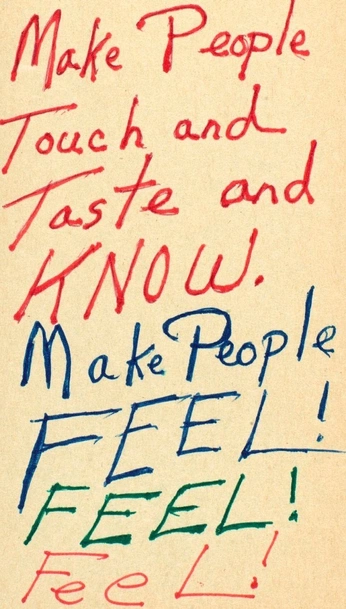 Make People
Touch and
Taste and
KNOW.
Make People
FEEL!
FEEL!
FeeL!